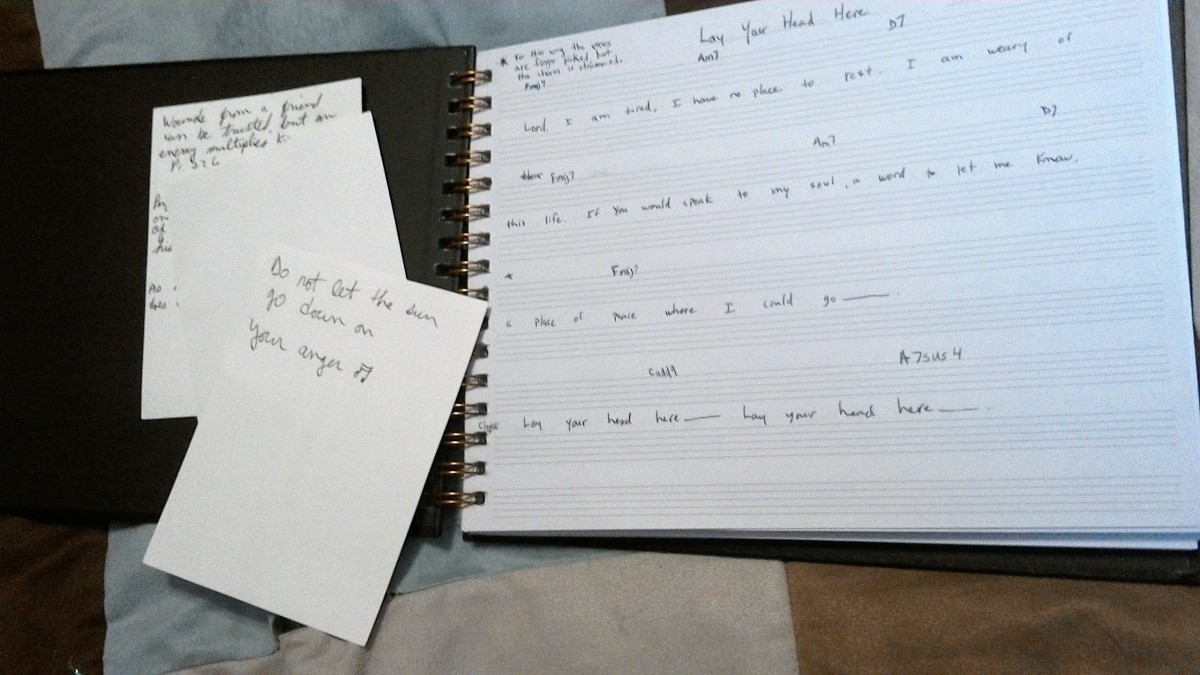 Wounds from a friend
can be trusted, but an
enemy multiplies k
P. S26
Do not let the sun
go down on
your anger
Lay Your Head Here
* For this song the
are finger picked, but
the chorus is strummed.
Fmaj7 Am7 D7
Lord, I am tired, I have no place to rest. I am weary of
Fmaj7 Am7 D7
this life. If you would speak to my soul, a word to let me know,
* Fmaj7
a place of peace where I could go ———.
Cadd9 A7sus4
Lay your head here —— Lay your head here ——.